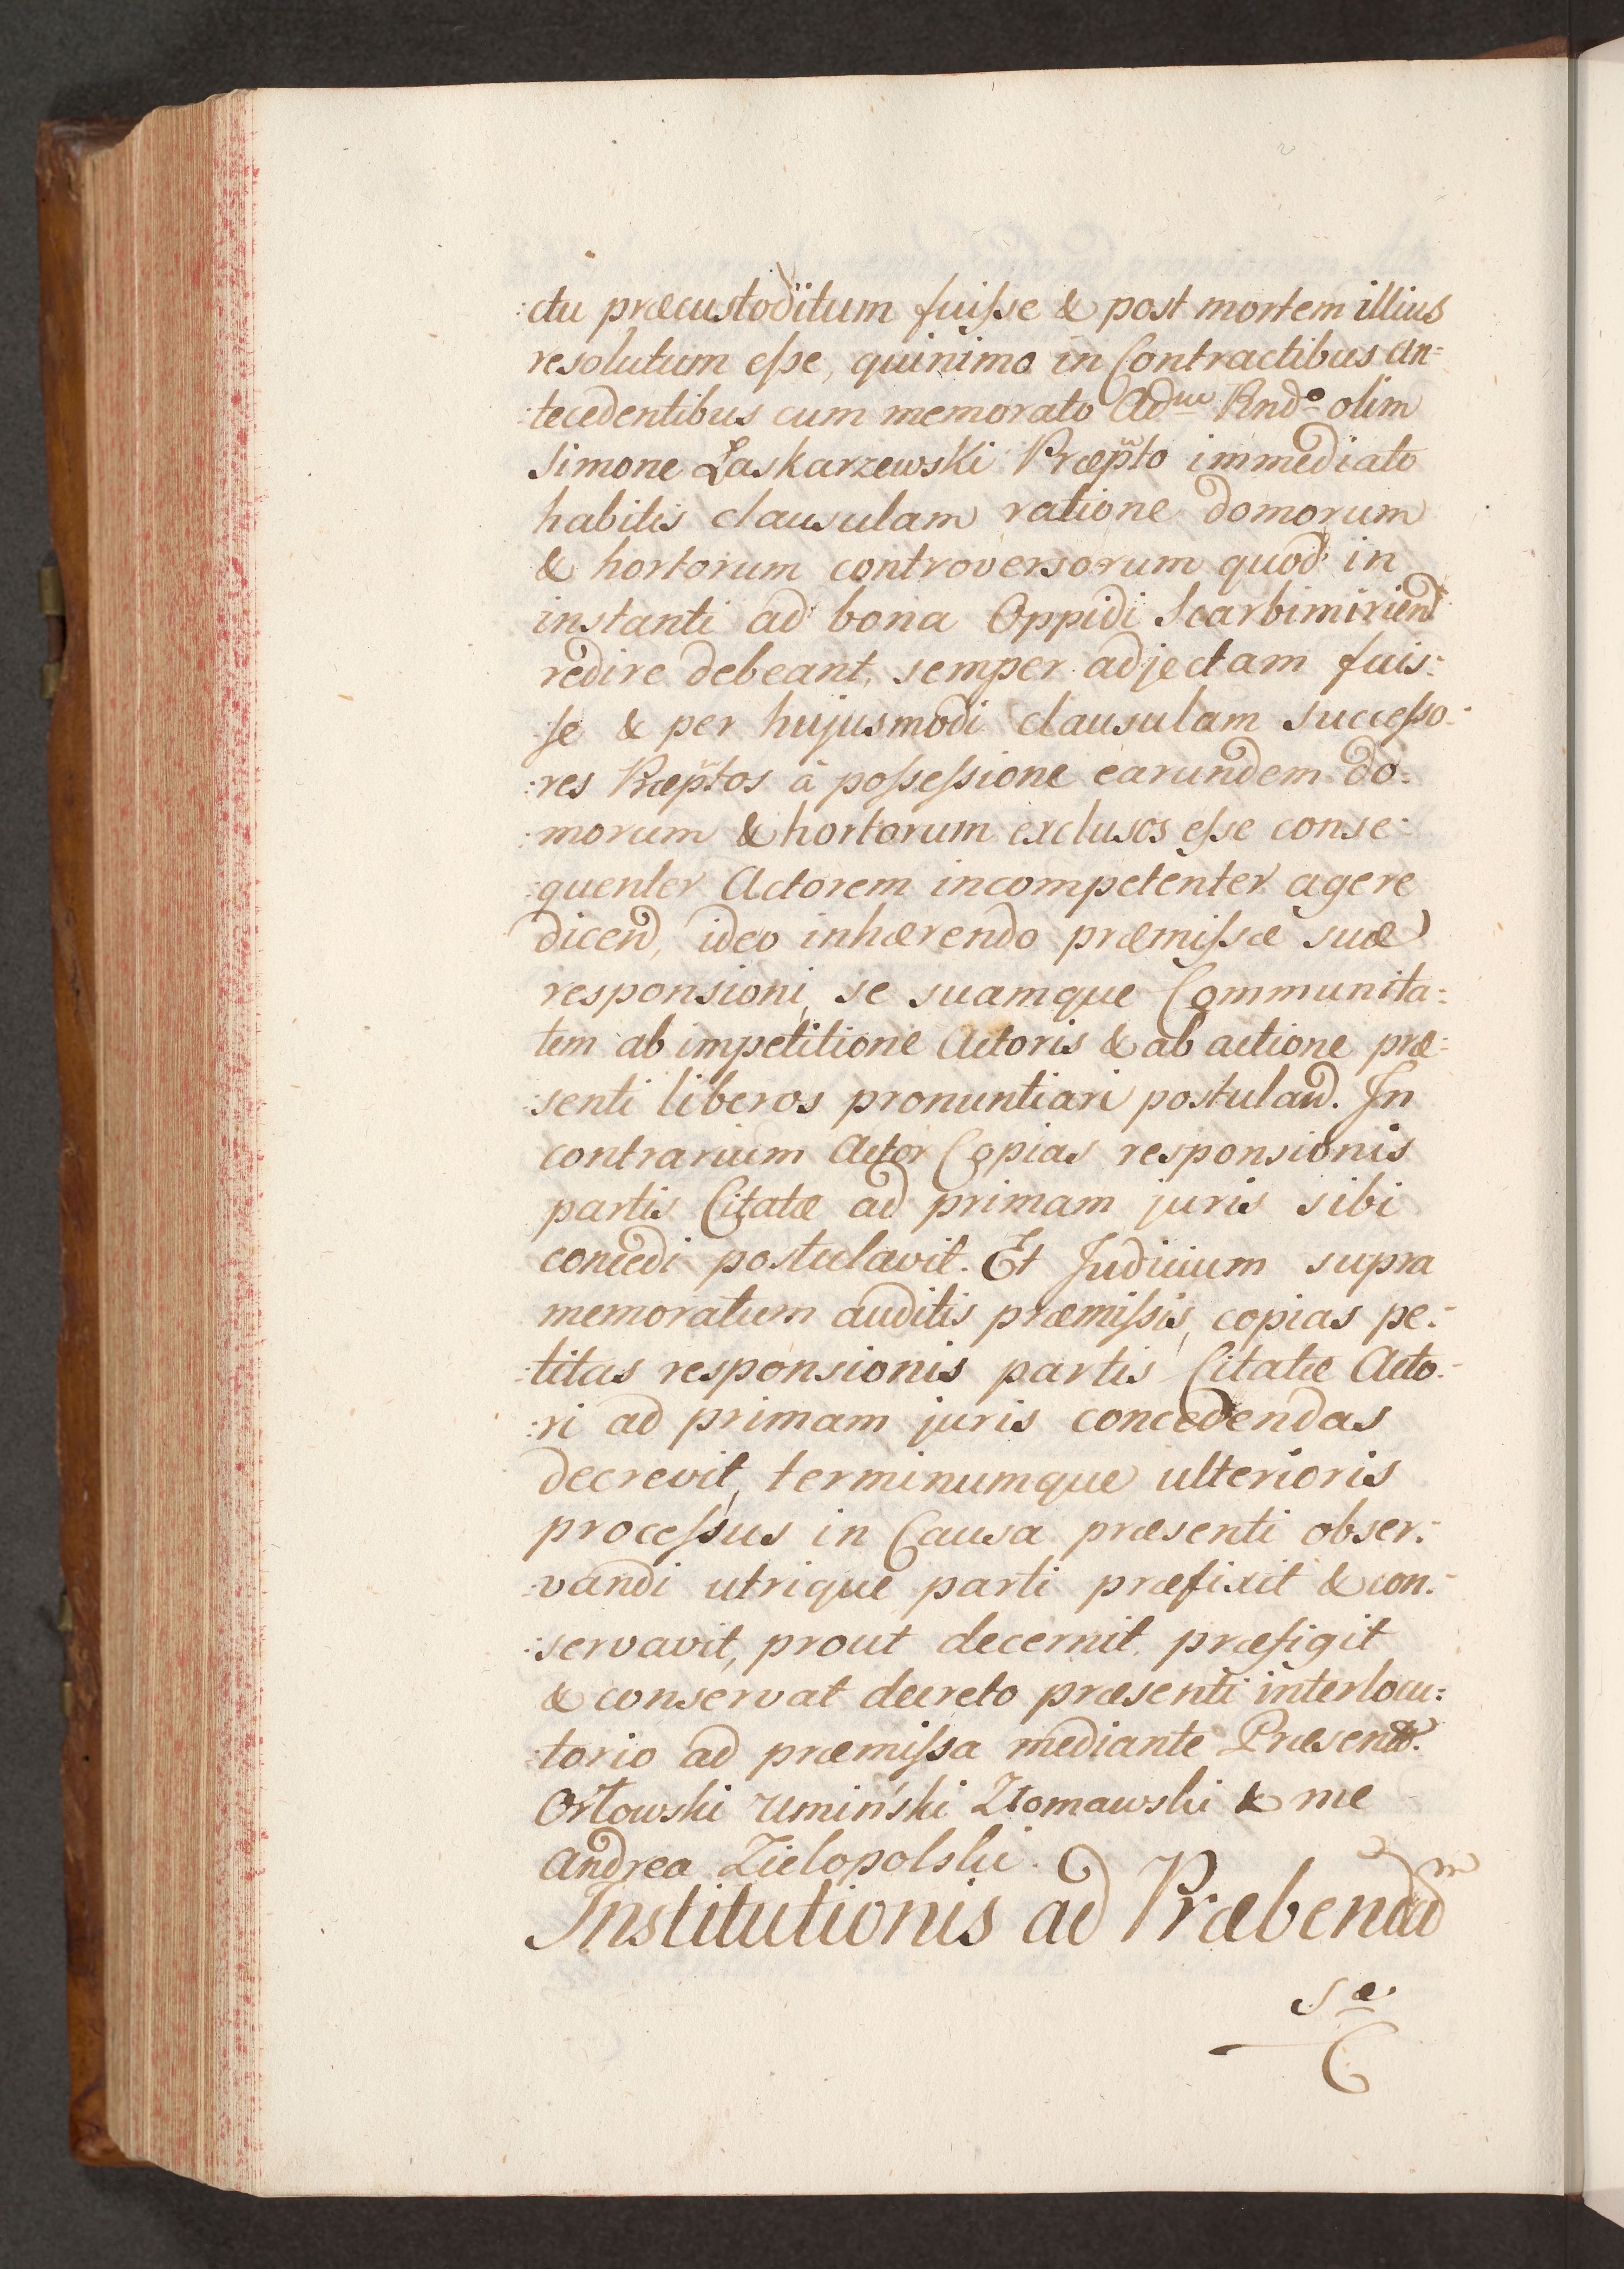 :ctu præcustoditum fuiſse & post mortem illius
resolutum eſse, quinimo in Contractibus an=
:tecedentibus cum memorato Adᵐ Rndº olim
Simone Łaskarzewski Præpto immediato
habitis clausulam ratione domorum
& hortorum controversorum quod in
instanti ad bona Oppidi Scarbimirien
redire debeant, semper adjectam fuis=
:se & per hujusmodi clausulam succeſso=
:res Præptos â poſseſsione earundem do=
:morum & hortorum exclusos eſse conse=
:quenter Actorem incompetenter agere
dicen, ideo inhærendo præmiſsæ suæ
responsioni, se suamque Communita=
tem ab impetitione Actoris & ab actione præ=
:senti liberos pronuntiari postulan. In
contrarium Actor Copias responsionis
partis Citatæ ad primam juris sibi
concedi postulavit. Et Judicium supra
memoratum auditis præmiſsis, copias pe=
:titas responsionis partis Citatæ Acto=
:ri ad primam juris concedendas
decrevit, terminumque ulterioris
proceſsus in Causa præsenti obser=
:vandi utrique parti præfixit & con=
:servavit, prout decernit, præfigit
& conservat decreto præsenti interlocu=
:torio ad præmiſsa mediante Præsent.
Orłowski Umiński Złomawski & me
Andrea Zielopolski.
Institutionis ad Præbendam